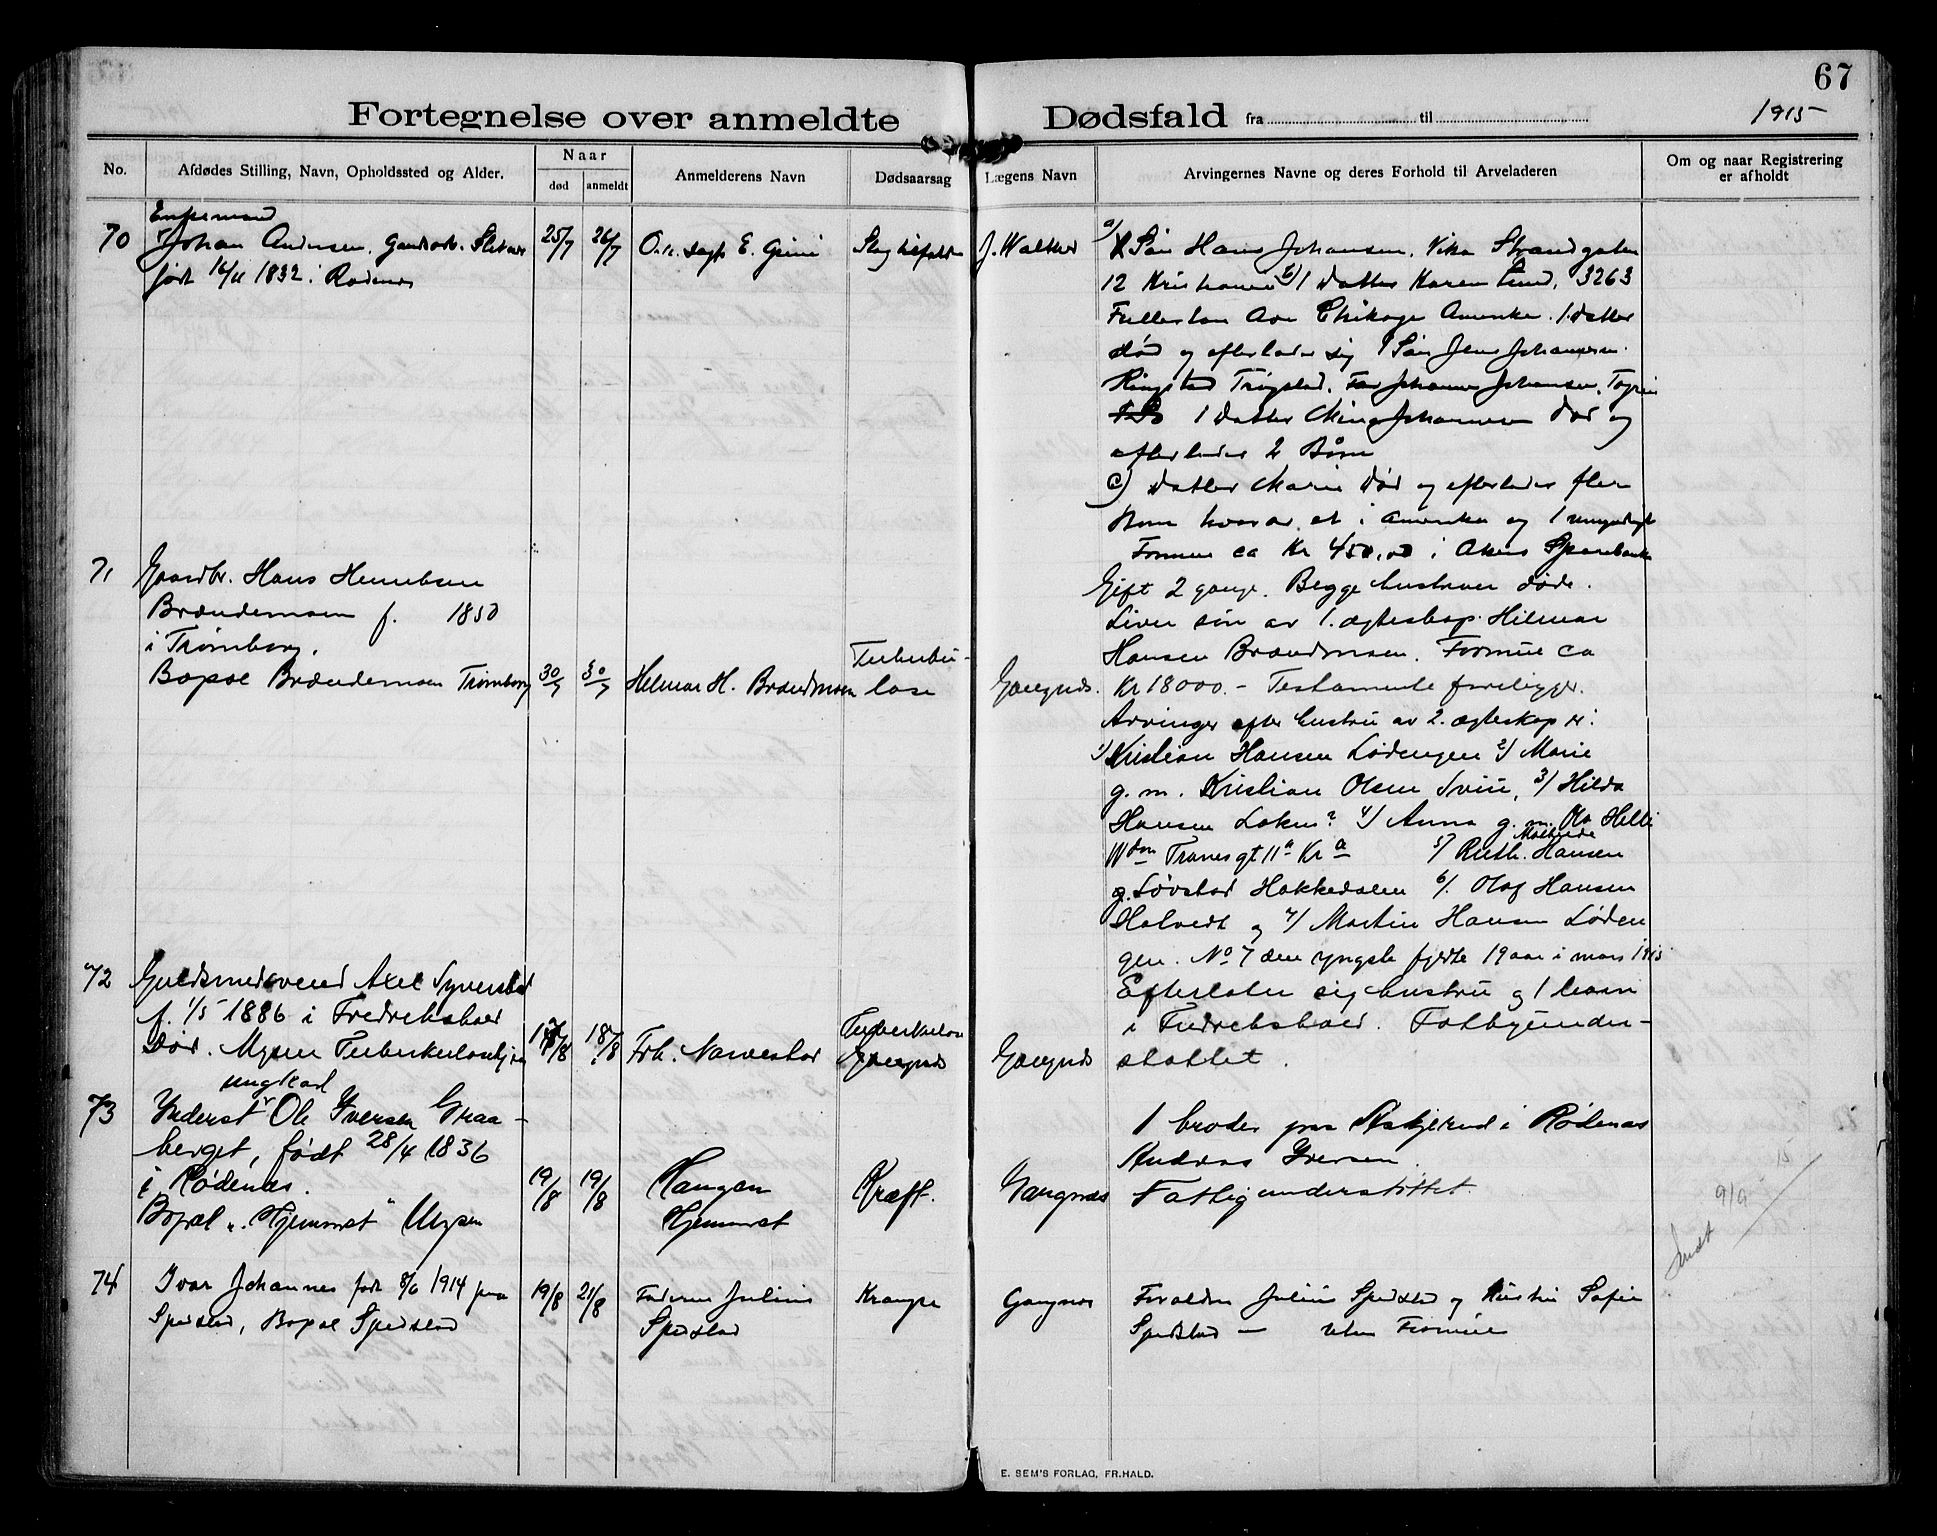 67
Fortegnelse over anmeldte Dødsfald fra til 1915
No.
Afdødes Stilling, Navn, Opholdssted og Alder.
Naar
død
anmeldt
Anmelderens Navn
Dødsaarsag
Lægens Navn
Arvingernes Navne og deres Forhold til Arveladeren
Om og naar Registrering
er afholdt
Enkemand
70
Johan Andersen,
født 16/11 1832 i Rødenes
25/7
26/7
J. Walther
a/ 1 Søn Hans Johansen, Vika Strandgaten
12 Kristiania b/ 1 Datter Karen Lund, 3263
Fullerton Ave Chikago Amerika. 1 Datter
død og efterlader sig 1 Søn Jens Johansen
Ringstad Trøgstad. Johansen,
1 Datter Mina Johansen død og
efterlader 2 Børn
c) Datter Marie død og efterlader flere
Børn hvorav et i Amerika og 1 umyndigt
Formue ca Kr 450,00 i Akers Sparebank
71
Gaardbr. Hans Henriksen
Brændemoen f. 1850
i Trømborg.
Bopæl Brændemoen Trømborg
30/7
30/7
Helmar H. Brændmoen
Tuberku-
lose
Gaugnæs.
Gift 2 gange. Begge hustruer døde.
Lever søn av 1. ægteskap: Hilmar
Hansen Brændmoen. Formue ca
Kr 18000.- Testamente foreligger.
Arvinger efter hustru av 2. ægteskap er:
1/ Kristian Hansen Lødengen 2/ Marie
g. m. Kristian Olsen 3/ Hilda
Hansen Løken? 4/ Anna g. m. Ola
Tranes gt 11a Kra 5/ Ruth. Mathilde Hansen
g. Løvstad Hakkedalen 6/. Olaf Hansen
Halvedt og 7/ Martin Hansen Løden
gen. No 7 den yngste fyldte 19 aar i mars 1915
72
Guldsmedsvend Axel Syverstad
f. 1/5 1886 i Fredrikshald
Død. Mysen Tuberkulosehjem
17/8
18/8
Frk. Narvestad
Tuberkulose
Gaugnæs
Gaugnæs
Efterlater sig hustru og 1 barn
i Fredrikshald. Fattigunder-
støttet.
73
ungkarl
Inderst Ole Iversen Graa-
berget, født 28/4 1836
i Rødenæs.
Bopæl "Hjemmet" Mysen
19/8
19/8
Haugen
Hjemmet
Kræft.
Gaugnæs
1 broder paa Askjerud i Rødenæs
Andreas Iversen.
Fattigunderstøttet.
Sendt 9/9 15
74
Ivar Johannes født 8/6 1914 paa
Spedstad, Bopæl Spedstad
19/8
21/8
Faderen Julius
Spedstad
Krampe
Gaugnæs
Forældre Julius Spedstad og Kristin Sofie
Spedstad — uten Formue
E. SEM'S FORLAG, FR.HALD.